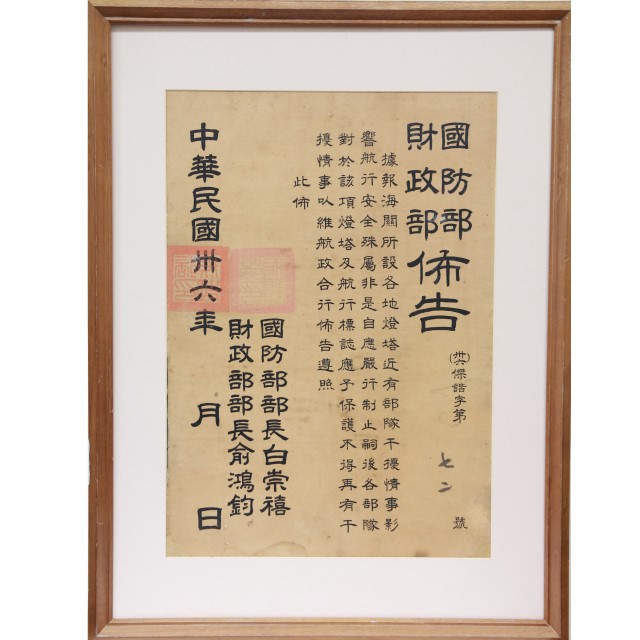 國防部
財政部
佈告
(卅六)保諮字第 七二 號
據報海關所設各地燈塔近有部隊干擾情事影
響航行安全殊屬非是自應嚴行制止嗣後各部隊
對於該項燈塔及航行標誌應予保護不得再有干
擾情事以維航政合行佈告遵照
此佈
國防部部長白崇禧
財政部部長俞鴻鈞
中華民國卅六年 月 日